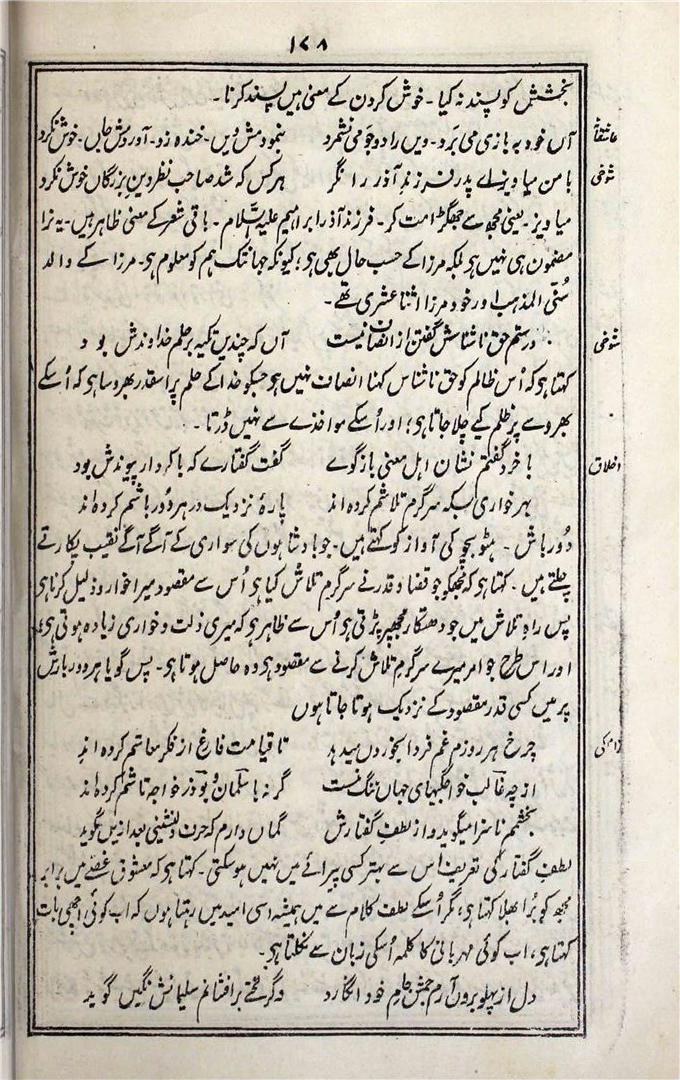 ۱۷۸
بخشش کو پسند نہ کیا - خوش کردن کے معنی ہیں پسند کرنا -
عاشقانہ آں خود بہ بازی می برد - ویں را دو جو می نشمرد بنمودمش دیں - خندہ زد - آوردمش جاں - خوش نکرد
شوخی با من میاویز اے پدر فرزندِ آذر را نگر ہرکس کہ شد صاحب نظر دینِ بزرگاں خوش نکرد
میاویز - یعنی مجھ سے جھگڑا مت کر - فرزند آذر ابراہیم علیہ السَّلام - باقی شعر کے معنی ظاہر ہیں - یہ نرا
مضمون ہی نہیں ہو بلکہ مرزا کے حسب حال بھی ہو؛ کیونکہ جہانتک ہم کو معلوم ہو - مرزا کے والد
سُنّی المذہب اور خود مرزا اثنا عشری تھے -
شوخی در ستم حق ناشناسش گفتن از انصاف نیست آں کہ چندیں تکیہ بر حلم خداوندش بود
کہتا ہو کہ اُس ظالم کو حق ناشناس کہنا انصاف نہیں ہو جسکو خدا کے حلم پر اسقدر بھروسا ہو کہ اُسکے
بھروسے پر ظلم کیے چلا جاتا ہو؛ اور اُسکے مواخذے سے نہیں ڈرتا -
اخلاق با خرد گفتم نشان اہل معنی بازگوے گفت گفتارے کہ با کردار پیوندش بود
بہر خواری بسکہ سرگرم تلاشم کردہ اند پارۂ نزدیک در ہر دور باشم کردہ اند
دُور باش - ہٹو بچو کی آواز کو کہتے ہیں - جو بادشاہوں کی سواری کے آگے آگے نقیب پکارتے
چلتے ہیں - کہتا ہو کہ مجھکو جو قضا و قدر نے سرگرم تلاش کیا ہو اُس سے مقصود میرا خوار و ذلیل کرنا ہو
پس راہِ تلاش میں جو دھتکار مجھپر پڑتی ہو اُس سے ظاہر ہو کہ میری ذلت و خواری زیادہ ہوتی ہو؛
اور اس طرح جو امر میرے سرگرم تلاش کرنے سے مقصود ہو وہ حاصل ہوتا ہو - پس گویا ہر دور باش
پر میں کسی قدر مقصود کے نزدیک ہوتا جاتا ہوں
چرخ ہر روزم غم فردا بخوردن میدہد تا قیامت فارغ از فکر معاشم کردہ اند
از چہ غالب خواجگیہای جہاں ننگ منست گر نہ با سلمان و بوذر خواجہ تاشم کردہ اند
بخشمم ناسزا میگوید و از لطف گفتارش گماں دارم کہ حرف دلنشینی بعد ازیں گوید
لطف گفتار کی تعریف اس سے بہتر کسی پیرائے میں نہیں ہو سکتی - کہتا ہو کہ معشوق غصے میں برابر
مجھ کو بُرا بھلا کہتا ہو، مگر اُسکے لطف کلام سے میں ہمیشہ اسی امید میں رہتا ہوں کہ اب کوئی اچھی بات
کہتا ہو، اب کوئی مہربانی کا کلمہ اُسکی زبان سے نکلتا ہو -
دل از پہلو بروں آرم جمش جامِ خود انگارد وگر لختے برافشانم سلیمانش نگیں گوید